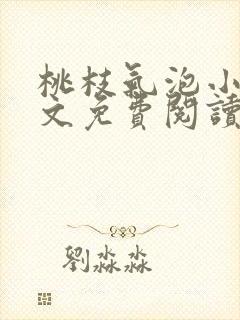 桃枝氣泡小
文免費閱讀
劉淼淼